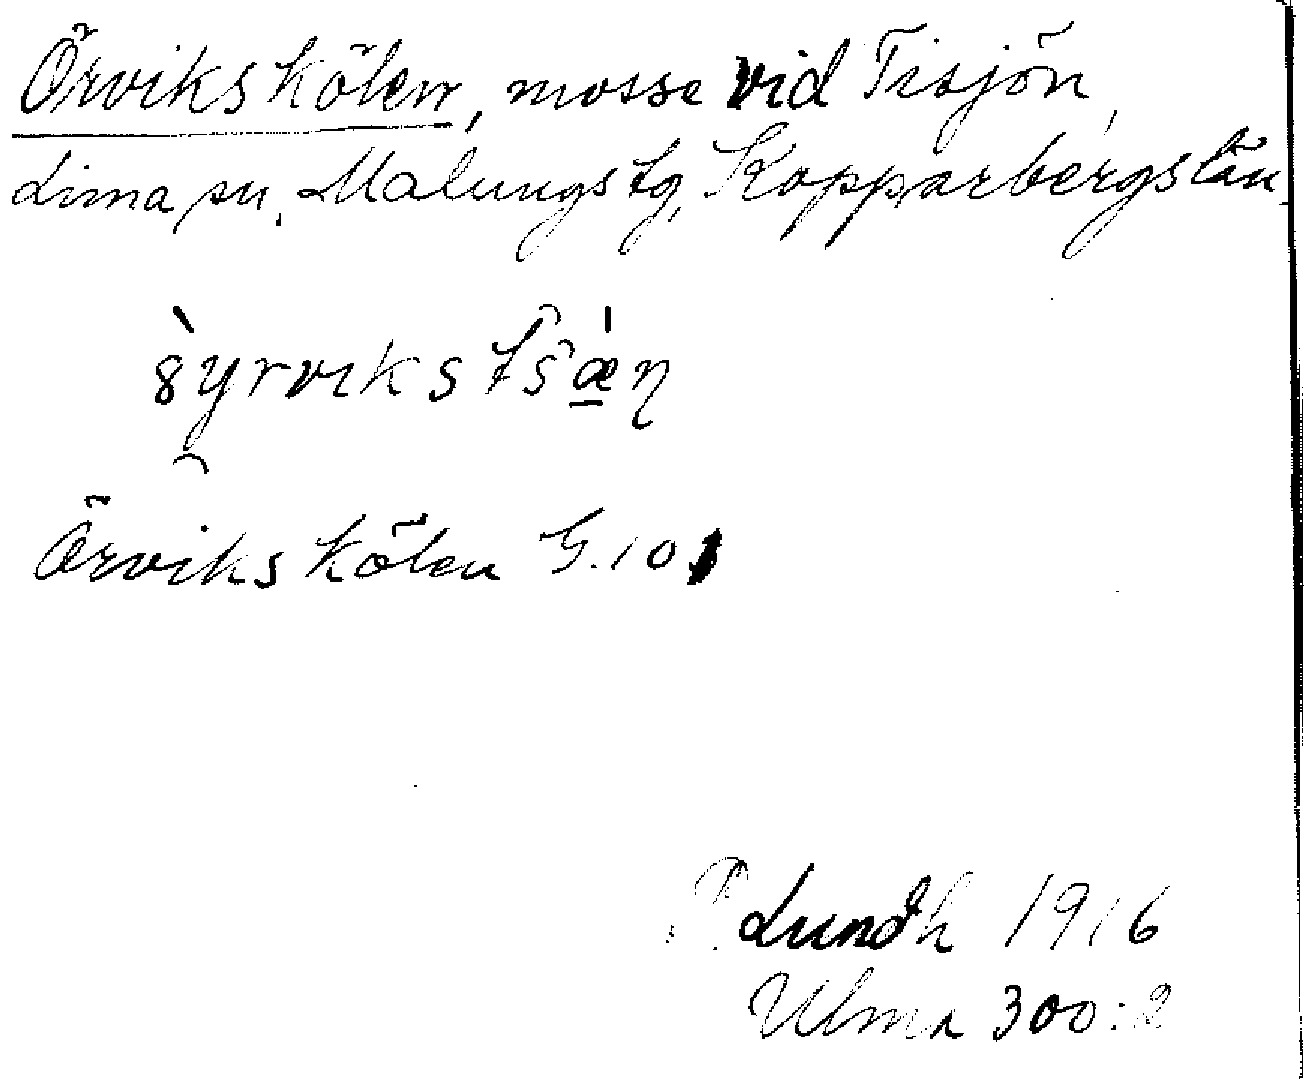 Örvikskölen, mosse vid Tisjön,
Lima sn, Malungs tg, Kopparbergs län
Örvikskölen G. 10
P. Lundh 1916
Ulma 300:2